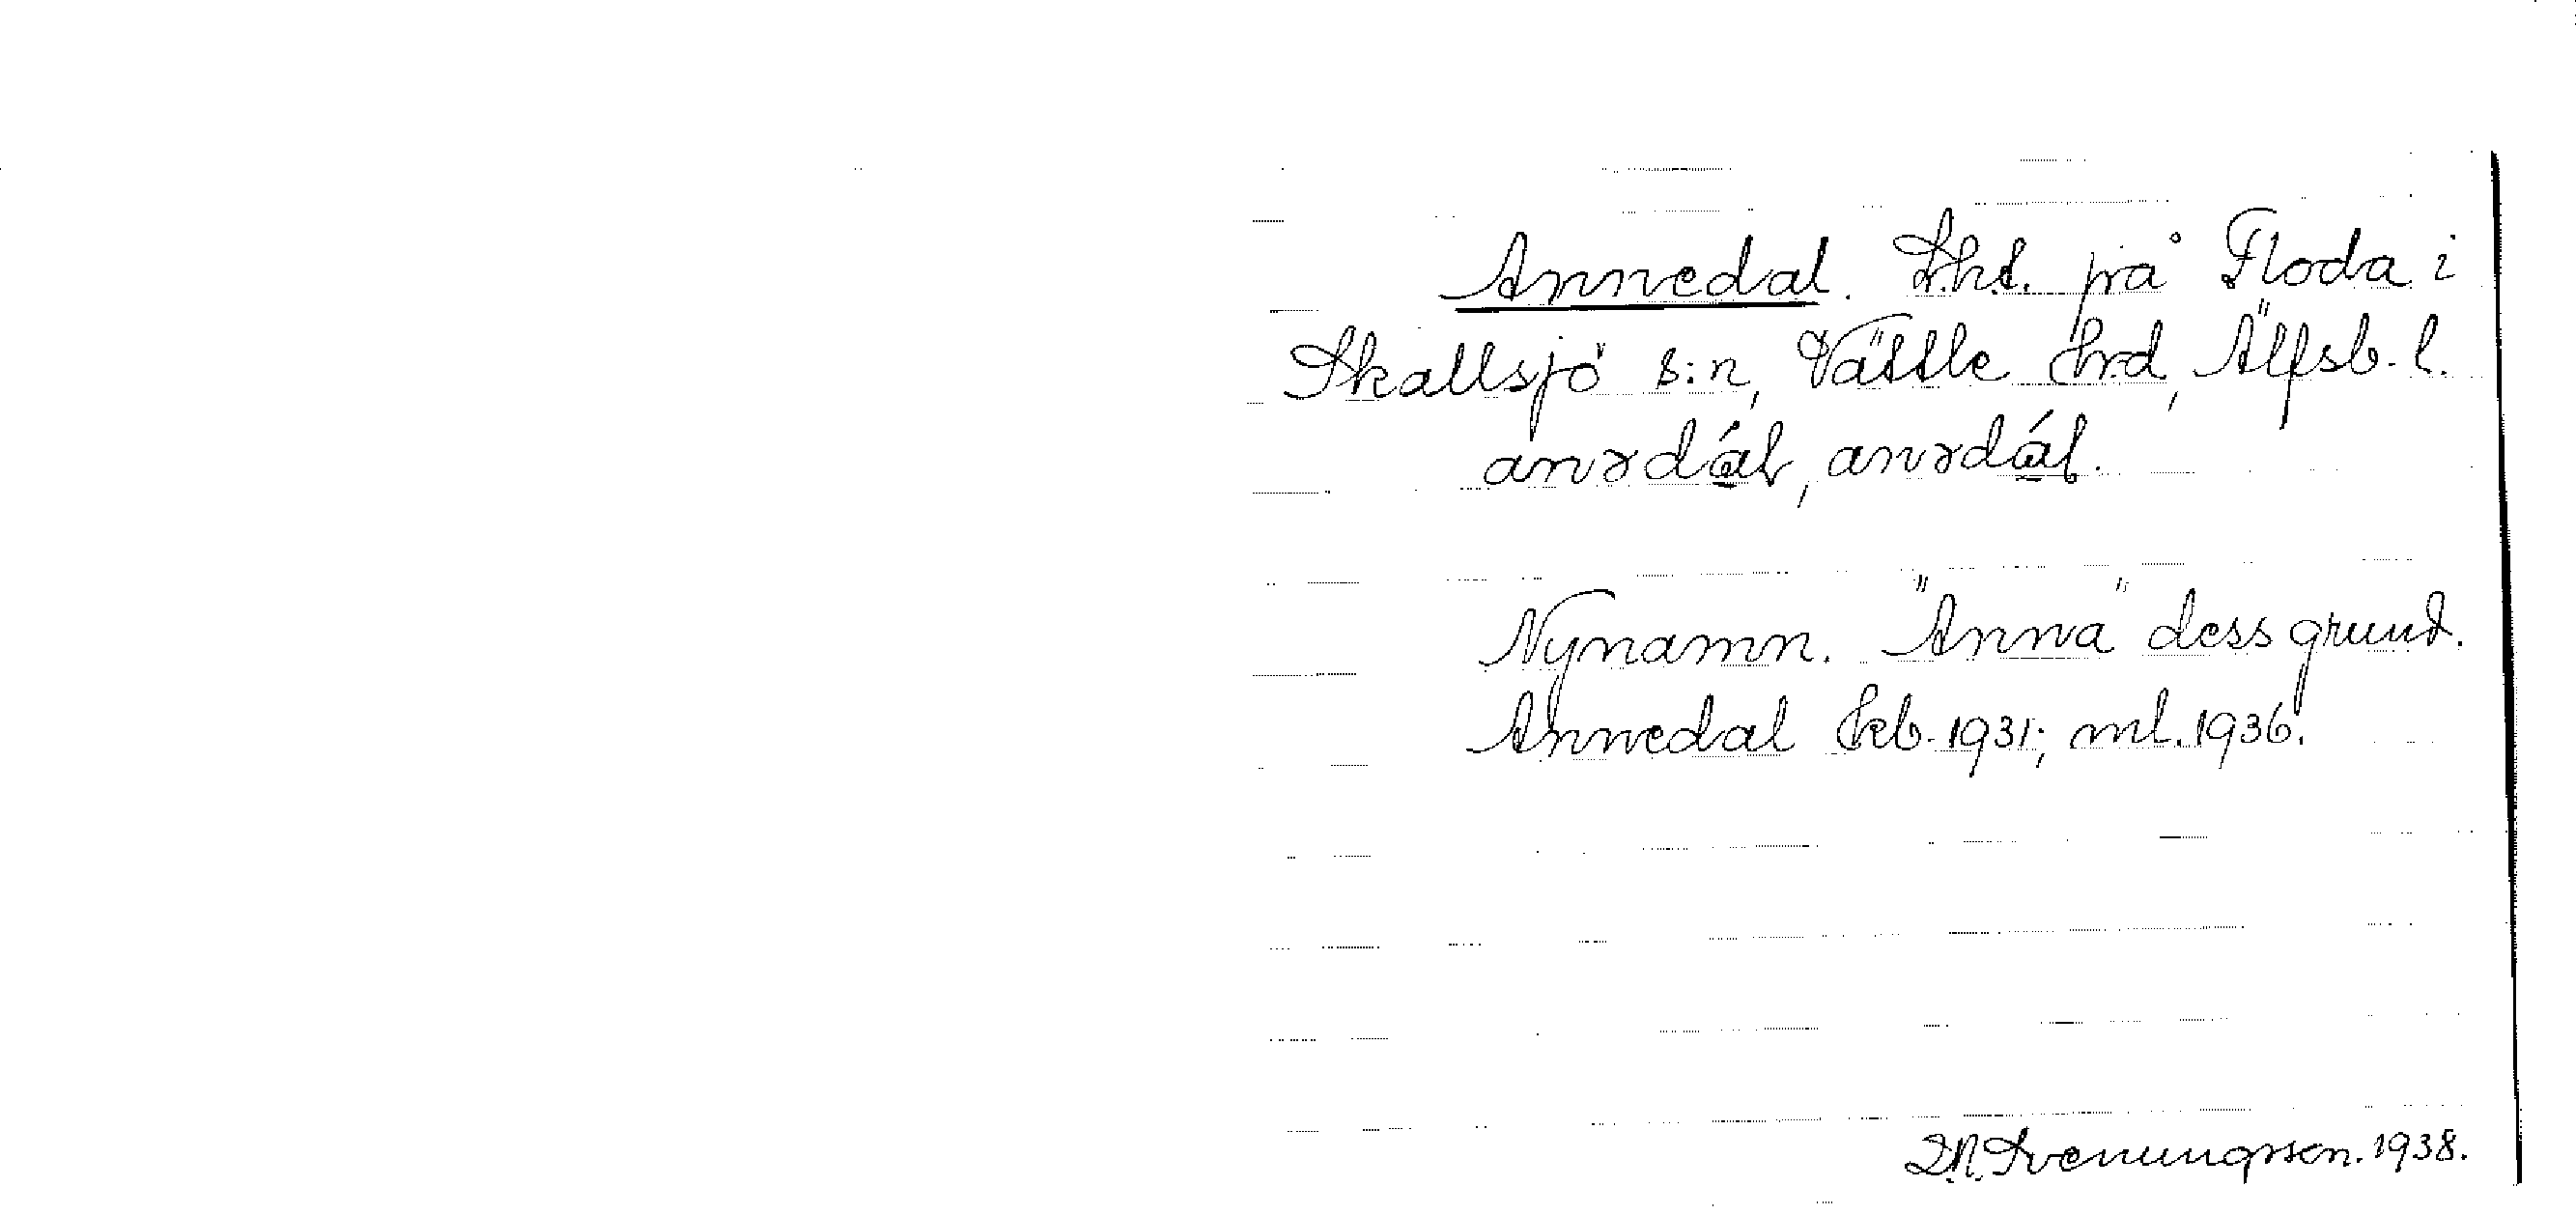 Annedal. Lht. på Floda i
Skallsjö s:n, Vättle hrd, Älfsb. l.
anədál, anədál.
Nynamn. "Anna" dess grund.
Annedal kb. 1931; ml. 1936.
Svenungsson. 1938.